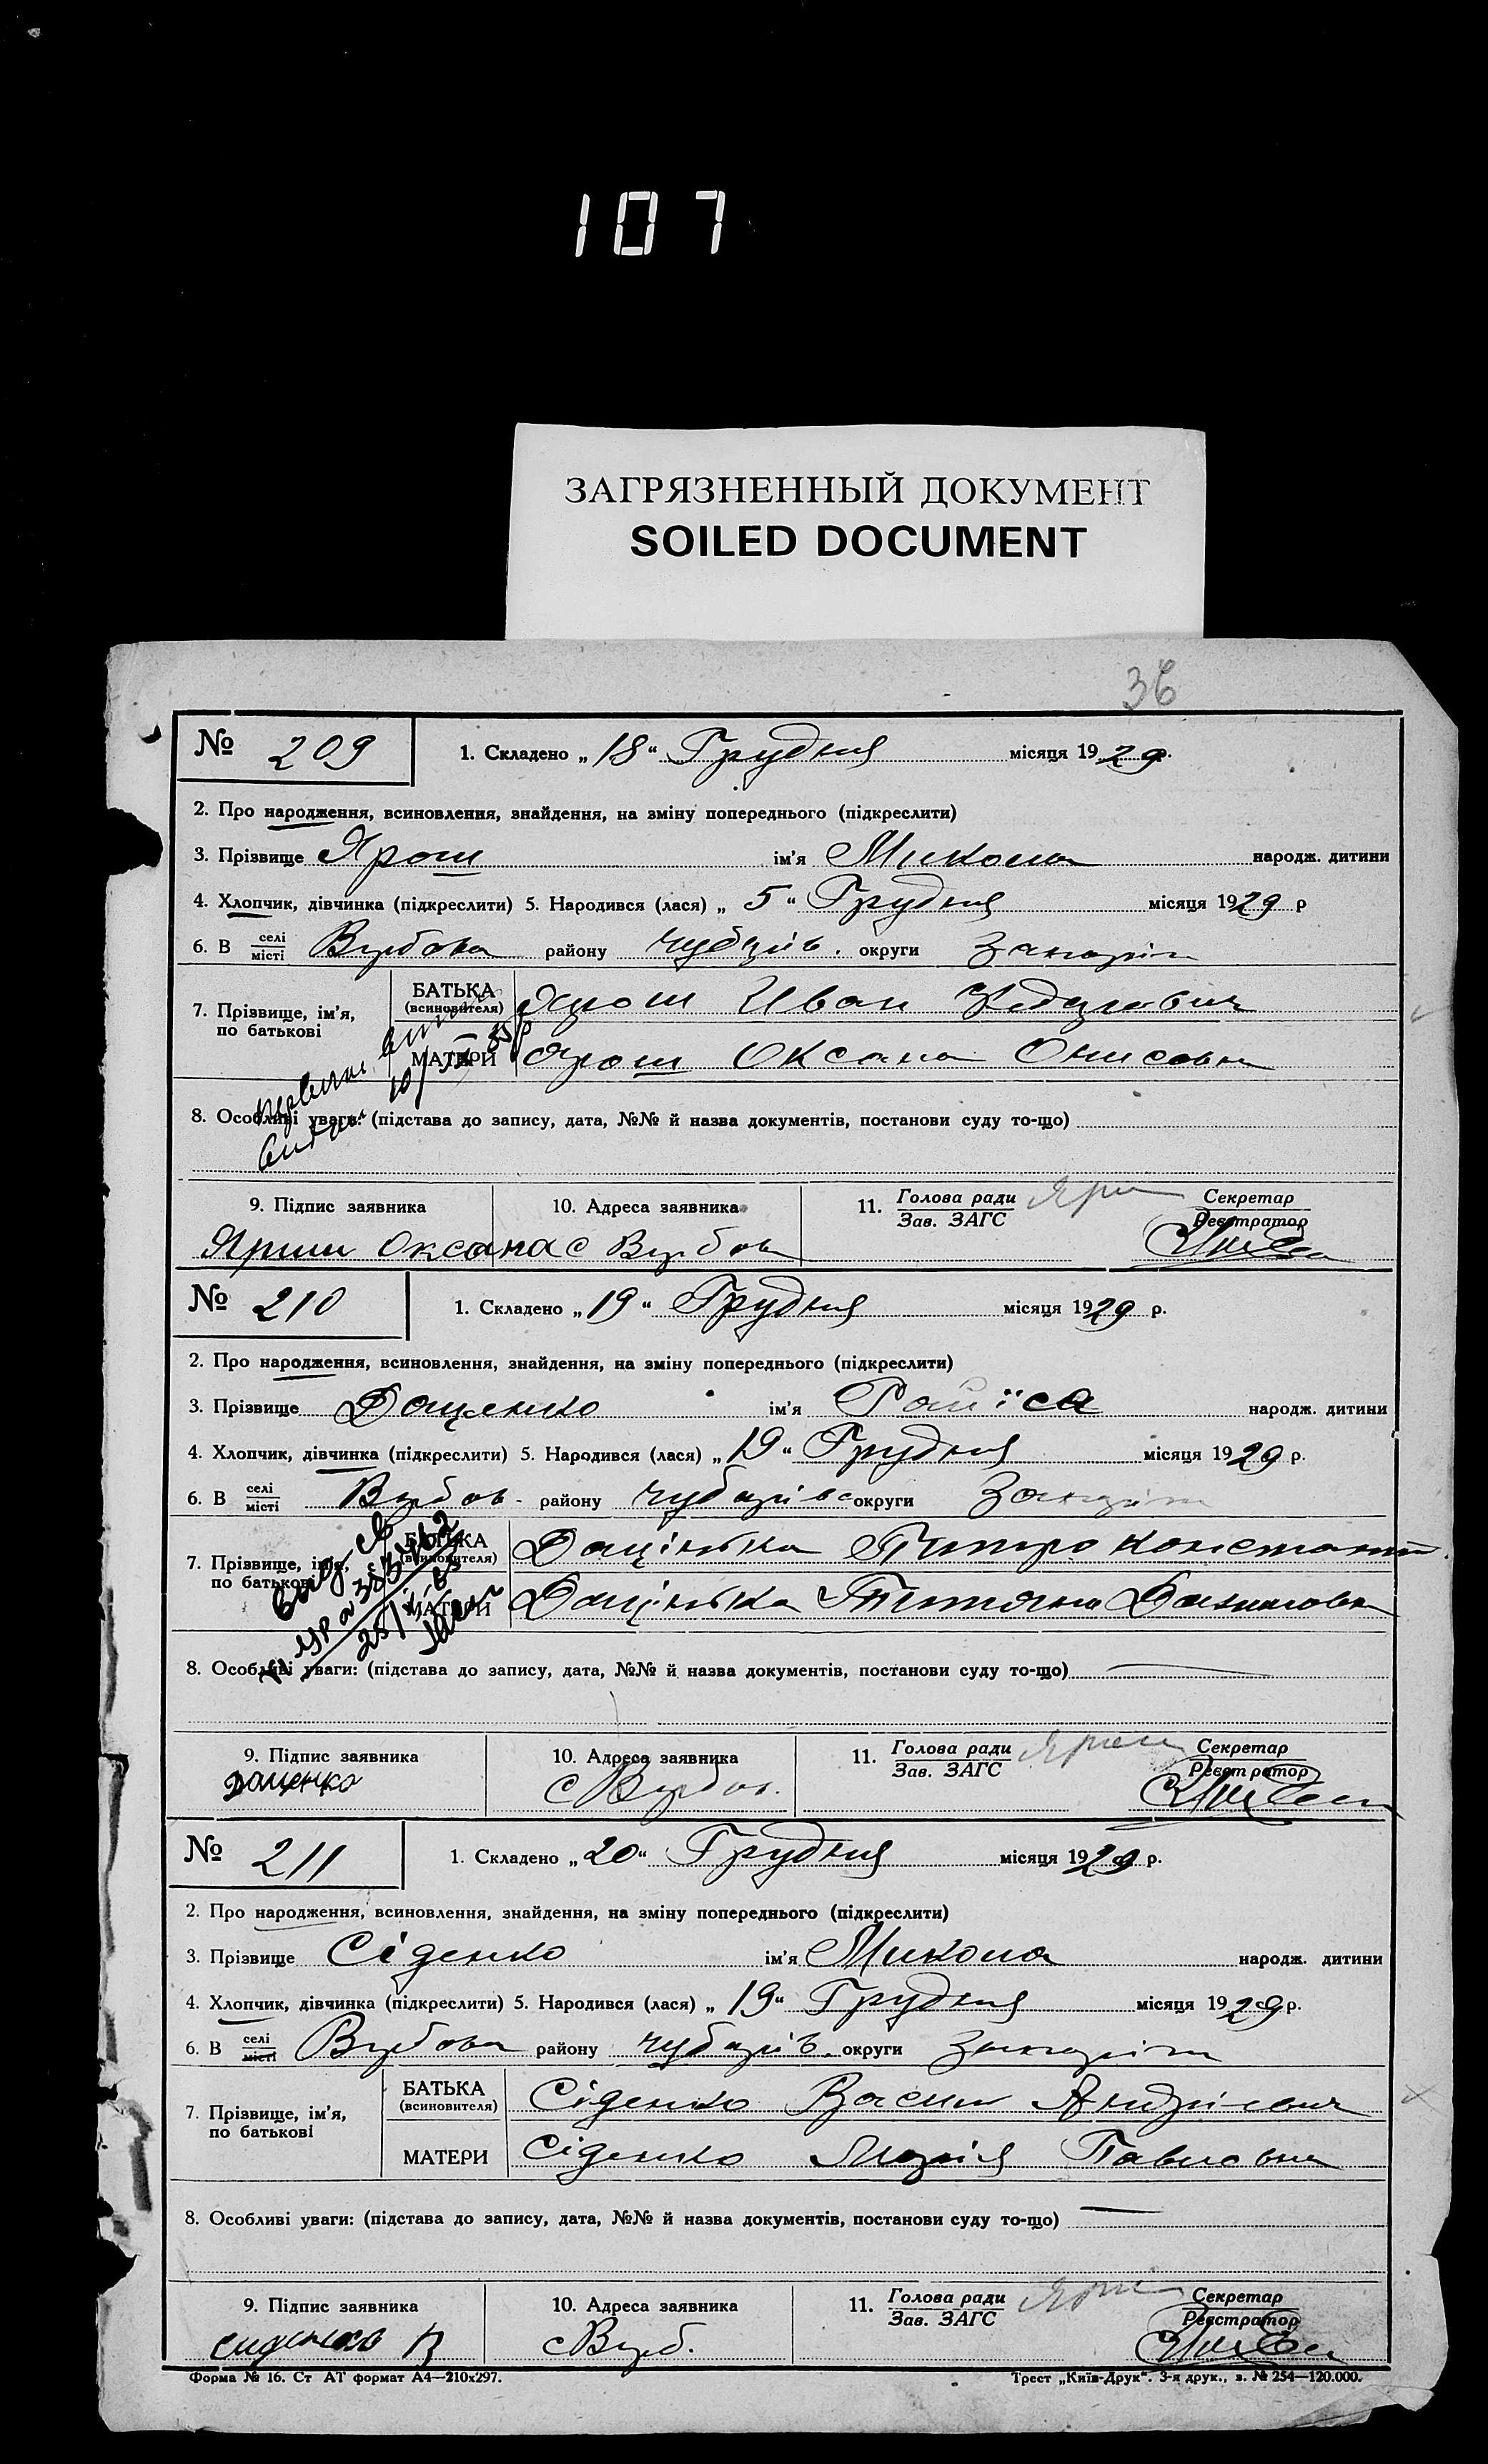 107
ЗАГРЯЗНЕННЫЙ ДОКУМЕНТ
SOILED DOCUMENT
36
№ 209 1. Складено „18“ Грудня місяця 1929 р.
2. Про народження, всиновлення, знайдення, на зміну попереднього (підкреслити)
3. Прізвище Ярош ім'я Микола народж. дитини
4. Хлопчик, дівчинка (підкреслити) 5. Народився (лася) „5“ Грудня місяця 1929 р
6. В селі місті Вербова району Чубарів. округи
7. Прізвище, ім'я, по батькові
БАТЬКА (всиновителя) Ярош Иван
МАТЕРИ Ярош Оксана
8. Особливі уваги: (підстава до запису, дата, №№ й назва документів, постанови суду то-що)
9. Підпис заявника 10. Адреса заявника 11. Голова ради Зав. ЗАГС Секретар Реєстратор
Ярош Оксана с Вербова
№ 210 1. Складено „19“ Грудня місяця 1929 р.
2. Про народження, всиновлення, знайдення, на зміну попереднього (підкреслити)
3. Прізвище Даценко ім'я Раиїса народж. дитини
4. Хлопчик, дівчинка (підкреслити) 5. Народився (лася) „19“ Грудня місяця 1929 р.
6. В селі місті Вербов- району Чубарівс округи
7. Прізвище, ім'я, по батькові
БАТЬКА (всиновителя) Дацінька Питро Констант.
МАТЕРИ Дацінька
8. Особливі уваги: (підстава до запису, дата, №№ й назва документів, постанови суду то-що)
9. Підпис заявника 10. Адреса заявника 11. Голова ради Зав. ЗАГС Секретар Реєстратор
Даценко с Вербов.
№ 211 1. Складено „20“ Грудня місяця 1929 р.
2. Про народження, всиновлення, знайдення, на зміну попереднього (підкреслити)
3. Прізвище Сіденко ім'я Микола народж. дитини
4. Хлопчик, дівчинка (підкреслити) 5. Народився (лася) „19“ Грудня місяця 1929 р.
6. В селі місті Вербова району Чубарів. округи
7. Прізвище, ім'я, по батькові
БАТЬКА (всиновителя) Сіденко Васил Андріевич
МАТЕРИ Сіденко Марія Павловна
8. Особливі уваги: (підстава до запису, дата, №№ й назва документів, постанови суду то-що)
9. Підпис заявника 10. Адреса заявника 11. Голова ради Зав. ЗАГС Секретар Реєстратор
Сиденко В с Верб.
Форма № 16. Ст АТ формат А4—210х297. Трест „Київ-Друк“. 3-я друк., з. № 254—120.000.